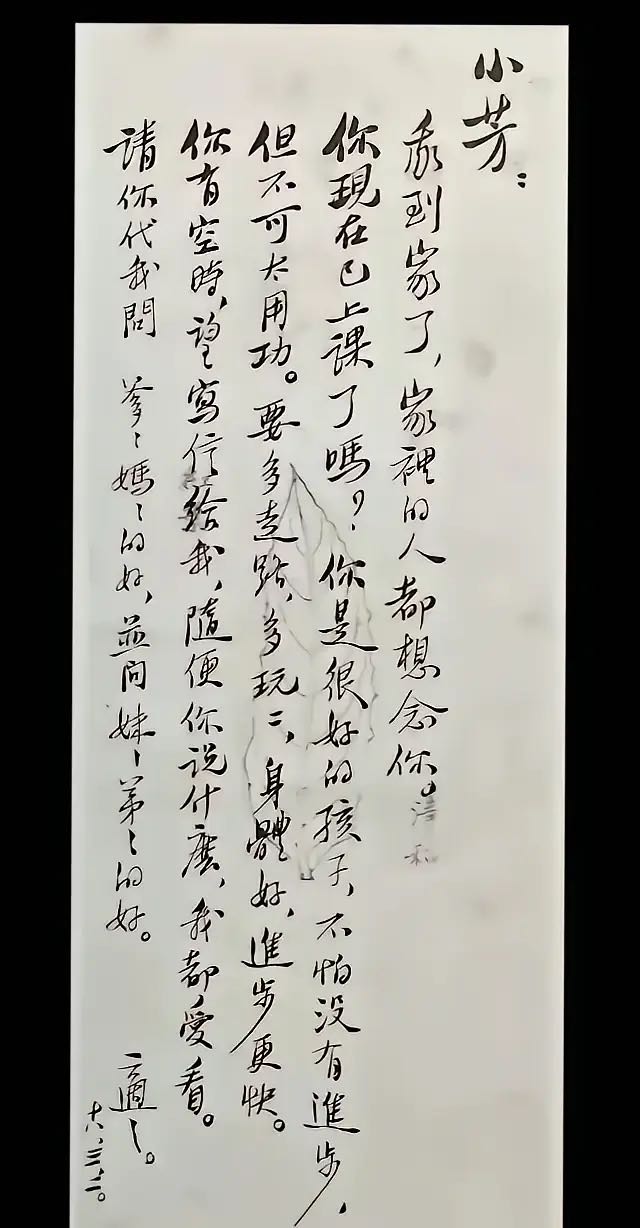 小芳：
我到家了，家裡的人都想念你。
你現在已上課了嗎？你是很好的孩子，不怕没有進步，
但不可太用功。要多走路，多玩〻，身體好，進步更快。
你有空時，望寫信給我，隨便你说什麼，我都愛看。
請你代我問 爹〻媽〻的好，並问妹〻弟〻的好。
適之。